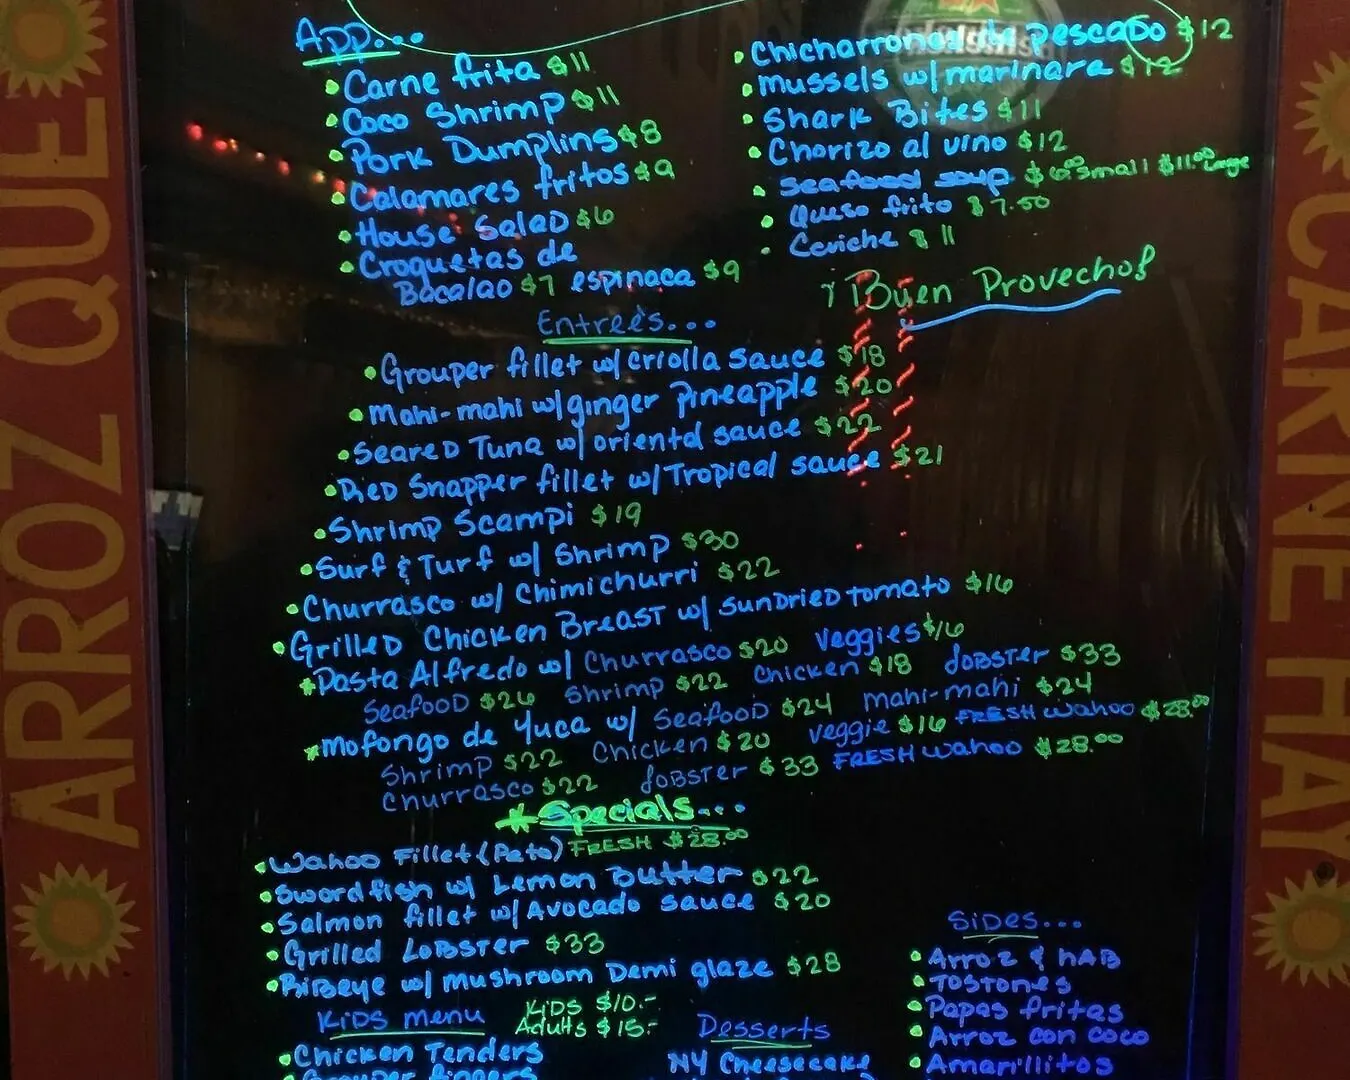 ARROZ QUE
CARNE HAY
App...
Carne frita $11
Coco Shrimp $11
Pork Dumplins $8
Calamares fritos $9
House Salad $6
Croquetas de
Bacalao $7 espinaca $9
Chicharrones de pescado $12
Mussels w/ marinara $12
Shark Bites $11
Chorizo al vino $12
Seafood soup $6.00 small $11.00 Large
Queso frito $7.50
Ceviche $11
¡Buen Provecho!
Entreés...
Grouper fillet w/ criolla sauce $18
Mahi-mahi w/ ginger pineapple $20
Seared Tuna w/ oriental sauce $22
Red Snapper fillet w/ Tropical sauce $21
Shrimp Scampi $19
Surf & Turf w/ Shrimp $30
Churrasco w/ Chimichurri $22
Grilled Chicken Breast w/ sundried tomato $16
*Pasta Alfredo w/ Churrasco $20 veggies $16
Seafood $26 Shrimp $22 Chicken $18 Lobster $33
*Mofongo de Yuca w/ Seafood $24 Mahi-mahi $24
Shrimp $22 Chicken $20 veggie $16 FRESH Wahoo $28.00
Churrasco $22 Lobster $33 FRESH Wahoo $28.00
*Specials...
Wahoo Fillet (Peto) FRESH $28.00
Swordfish w/ Lemon Butter $22
Salmon fillet w/ Avocado sauce $20
Grilled Lobster $33
Ribeye w/ mushroom Demi glaze $28
Kids menu
Kids $10.-
Adults $15.-
Chicken Tenders
Grouper fingers
Desserts
NY Cheesecake
Sides...
Arroz & hab
Tostones
Papas fritas
Arroz con coco
Amarillitos